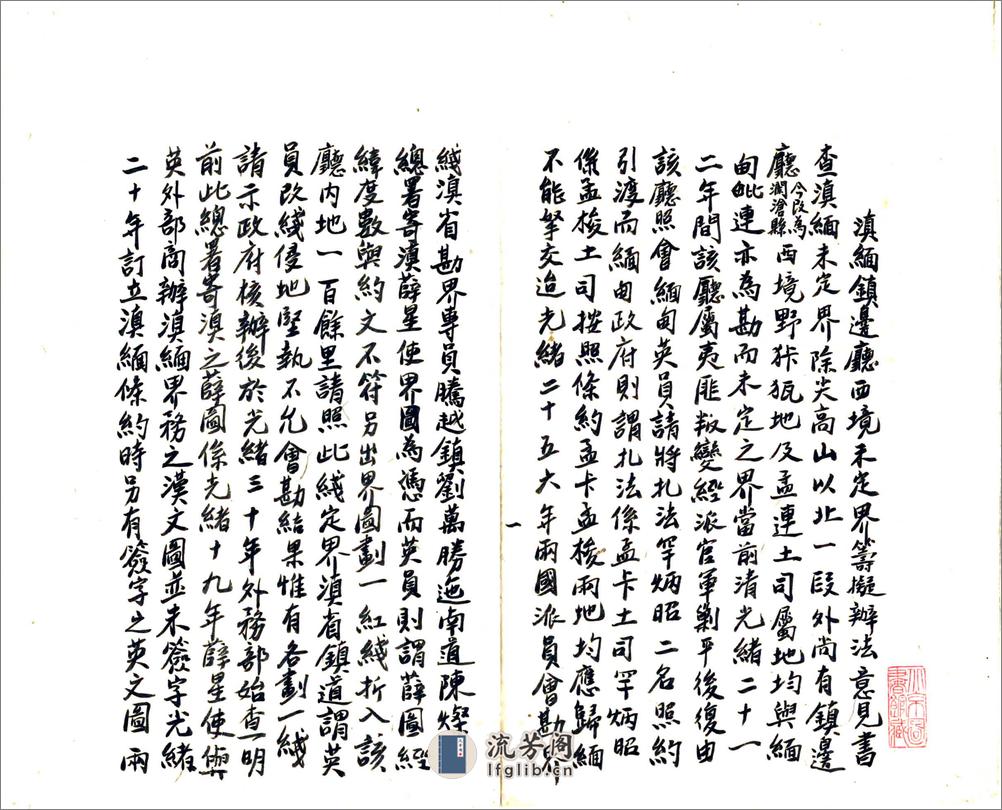 滇緬鎮邊廳西境未定界籌擬辦法意見書
查滇緬未定界除尖高山以北一段外尚有鎮邊
廳今改為瀾滄縣西境野地及孟連土司屬地均與緬
甸毗連亦為勘而未定之界當前清光緒二十一
二年間該廳屬夷匪叛變經派官軍剿平後復由
該廳照會緬甸英員請將扎法罕炳昭二名照約
引渡而緬甸政府則謂扎法係孟卡土司罕炳昭
係孟梭土司按照條約孟卡孟梭兩地均應歸緬
不能拏交迨光緒二十五六年兩國派員會勘
一
綫滇省勘界專員騰越鎮劉萬勝迤南道陳燦
總署寄滇薛星使界圖為憑而英員則謂薛圖經
緯度數與約文不符另出界圖劃一紅綫折入該
廳內地一百餘里請照此綫定界滇省鎮道謂英
員改綫侵地堅執不允會勘結果惟有各劃一綫
請示政府核辦後於光緒三十年外務部始查明
前此總署寄滇之薛圖係光緒十九年薛星使與
英外部商辦滇緬界務之漢文圖並未簽字光緒
二十年訂立滇緬條約時另有簽字之英文圖兩
流芳閣
lfglib.cn